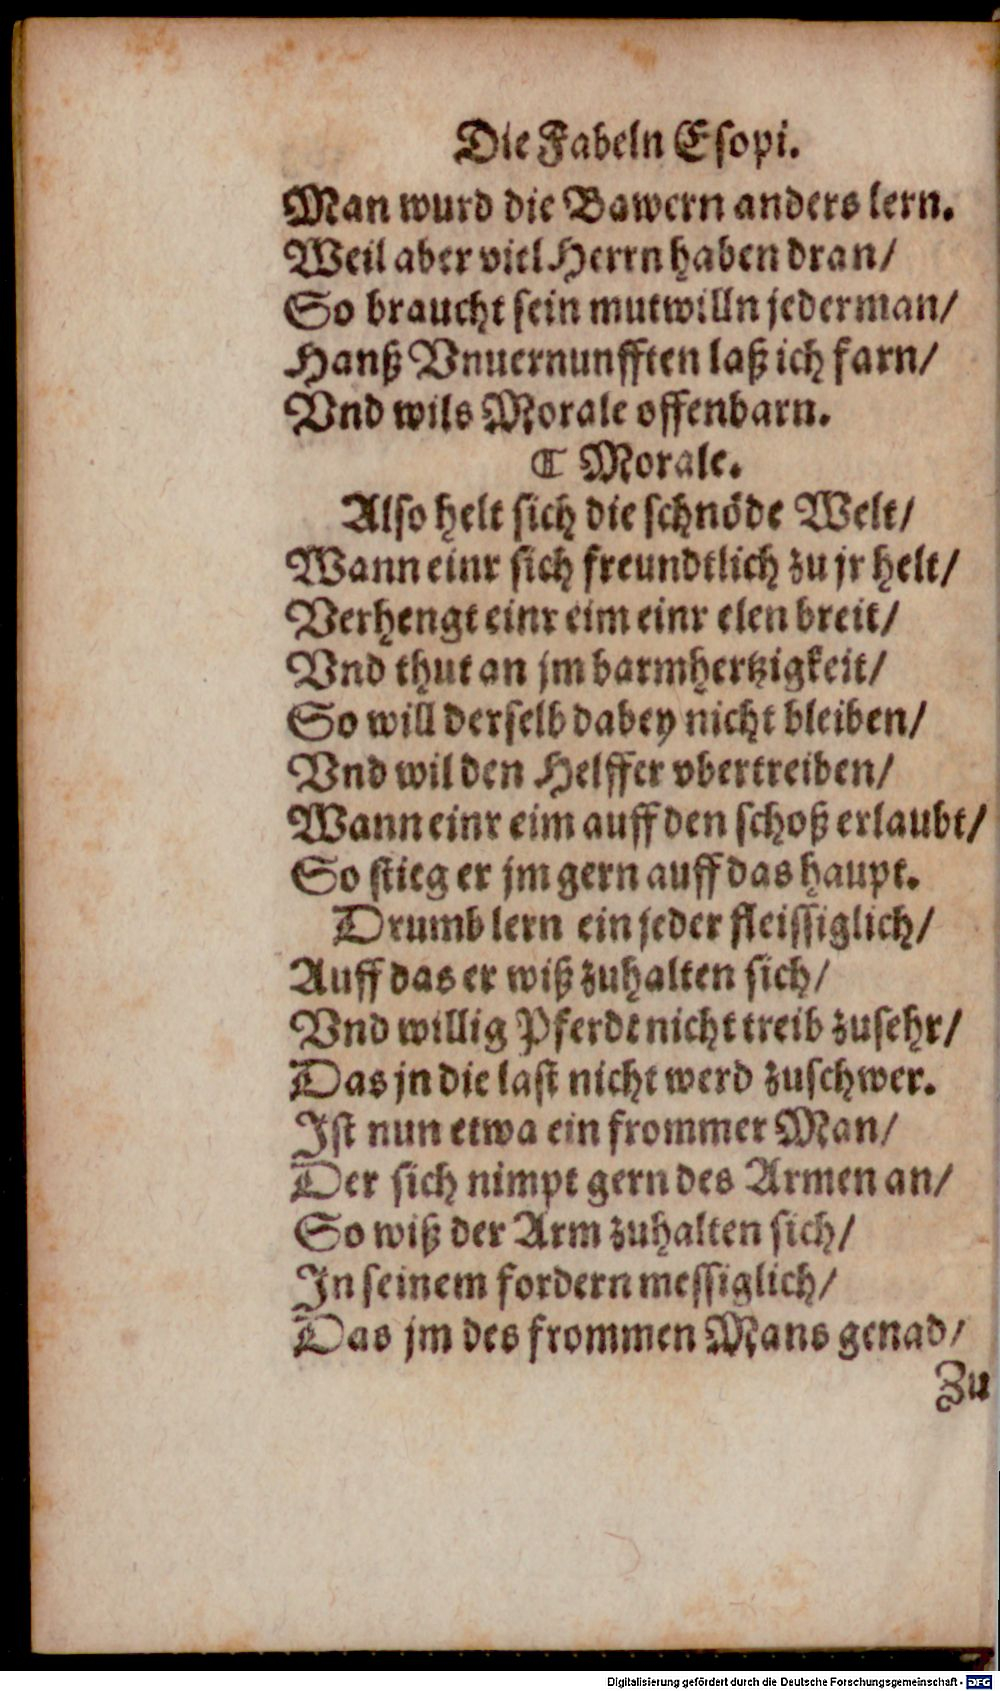 Die Fabeln Esopi.
Man wurd die Bawern anders lern.
Weil aber viel Herrn haben dran/
So braucht sein mutwilln jederman/
Hanß Vnuernunfften laß ich farn/
Vnd wils Morale offenbarn.
❡ Morale.
Also helt sich die schnöde Welt/
Wann einr sich freundtlich zu jr helt/
Verhengt einr eim einr elen breit/
Vnd thut an jm barmhertzigkeit/
So will derselb dabey nicht bleiben/
Vnd wil den Helffer vbertreiben/
Wann einr eim auff den schoß erlaubt/
So stieg er jm gern auff das haupt.
Drumb lern ein jeder fleissiglich/
Auff das er wiß zuhalten sich/
Vnd willig Pferdt nicht treib zusehr/
Das jn die last nicht werd zuschwer.
Ist nun etwa ein frommer Man/
Der sich nimpt gern des Armen an/
So wiß der Arm zuhalten sich/
In seinem fordern messiglich/
Das jm des frommen Mans genad/
Zu
Digitalisierung gefördert durch die Deutsche Forschungsgemeinschaft - DFG